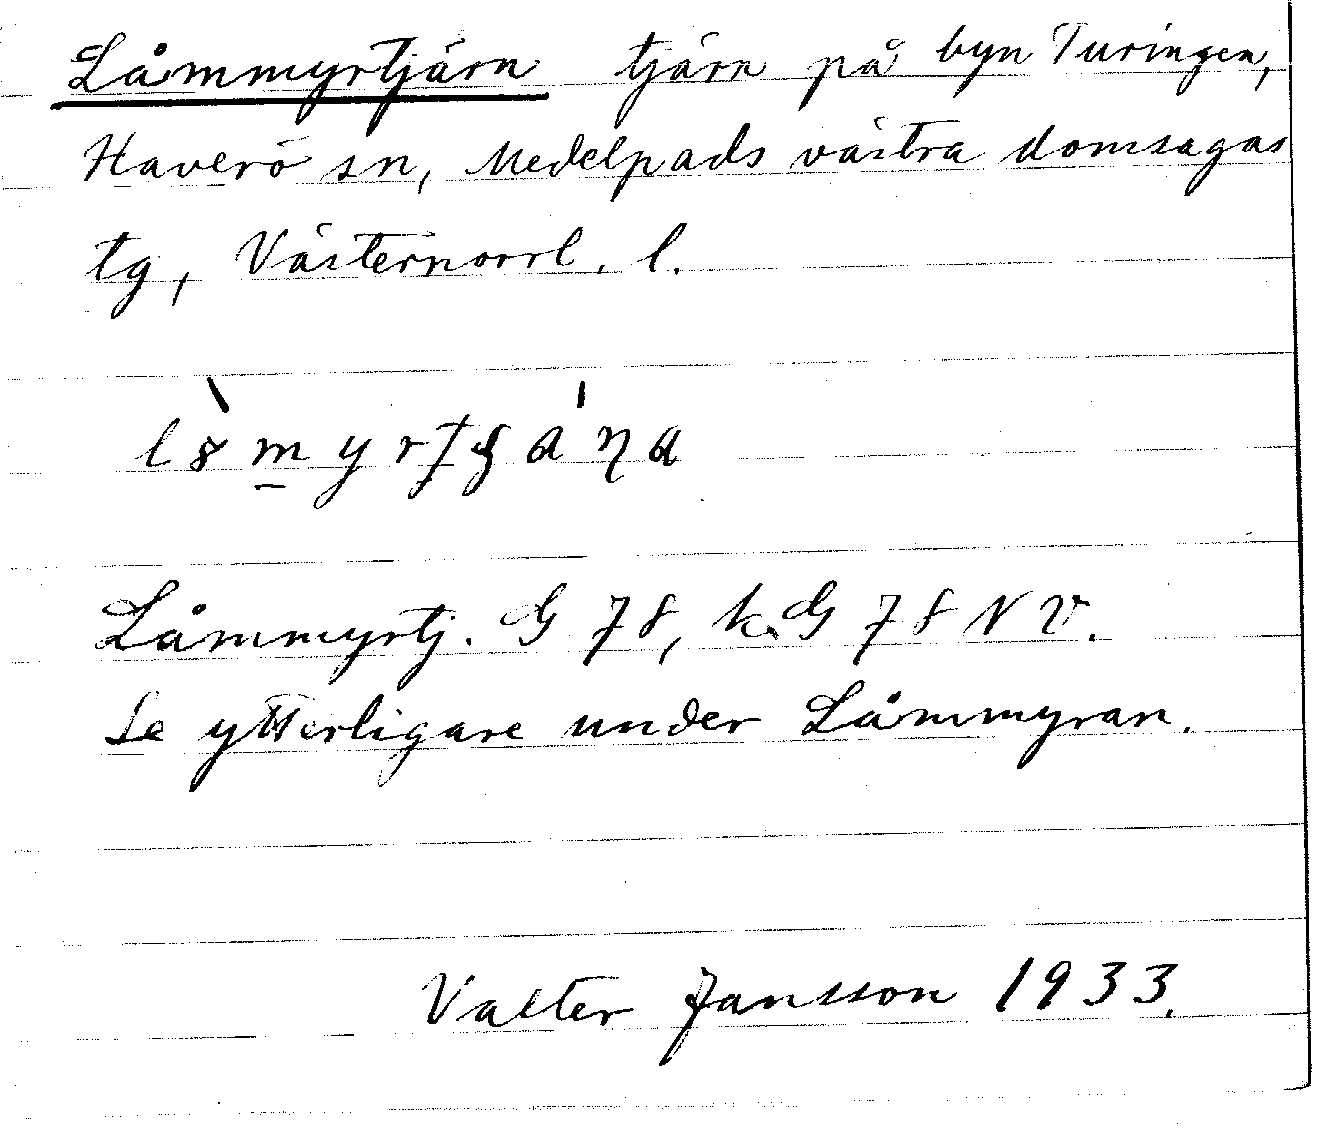 Låmmyrtjärn tjärn på byn Turingen,
Haverö sn, Medelpads västra domsagas
tg, Västernorrl. l.
Låmmyrtj. G 78, k.G 78 NV.
Se ytterligare under Låmmyran.
Valter Jansson 1933.